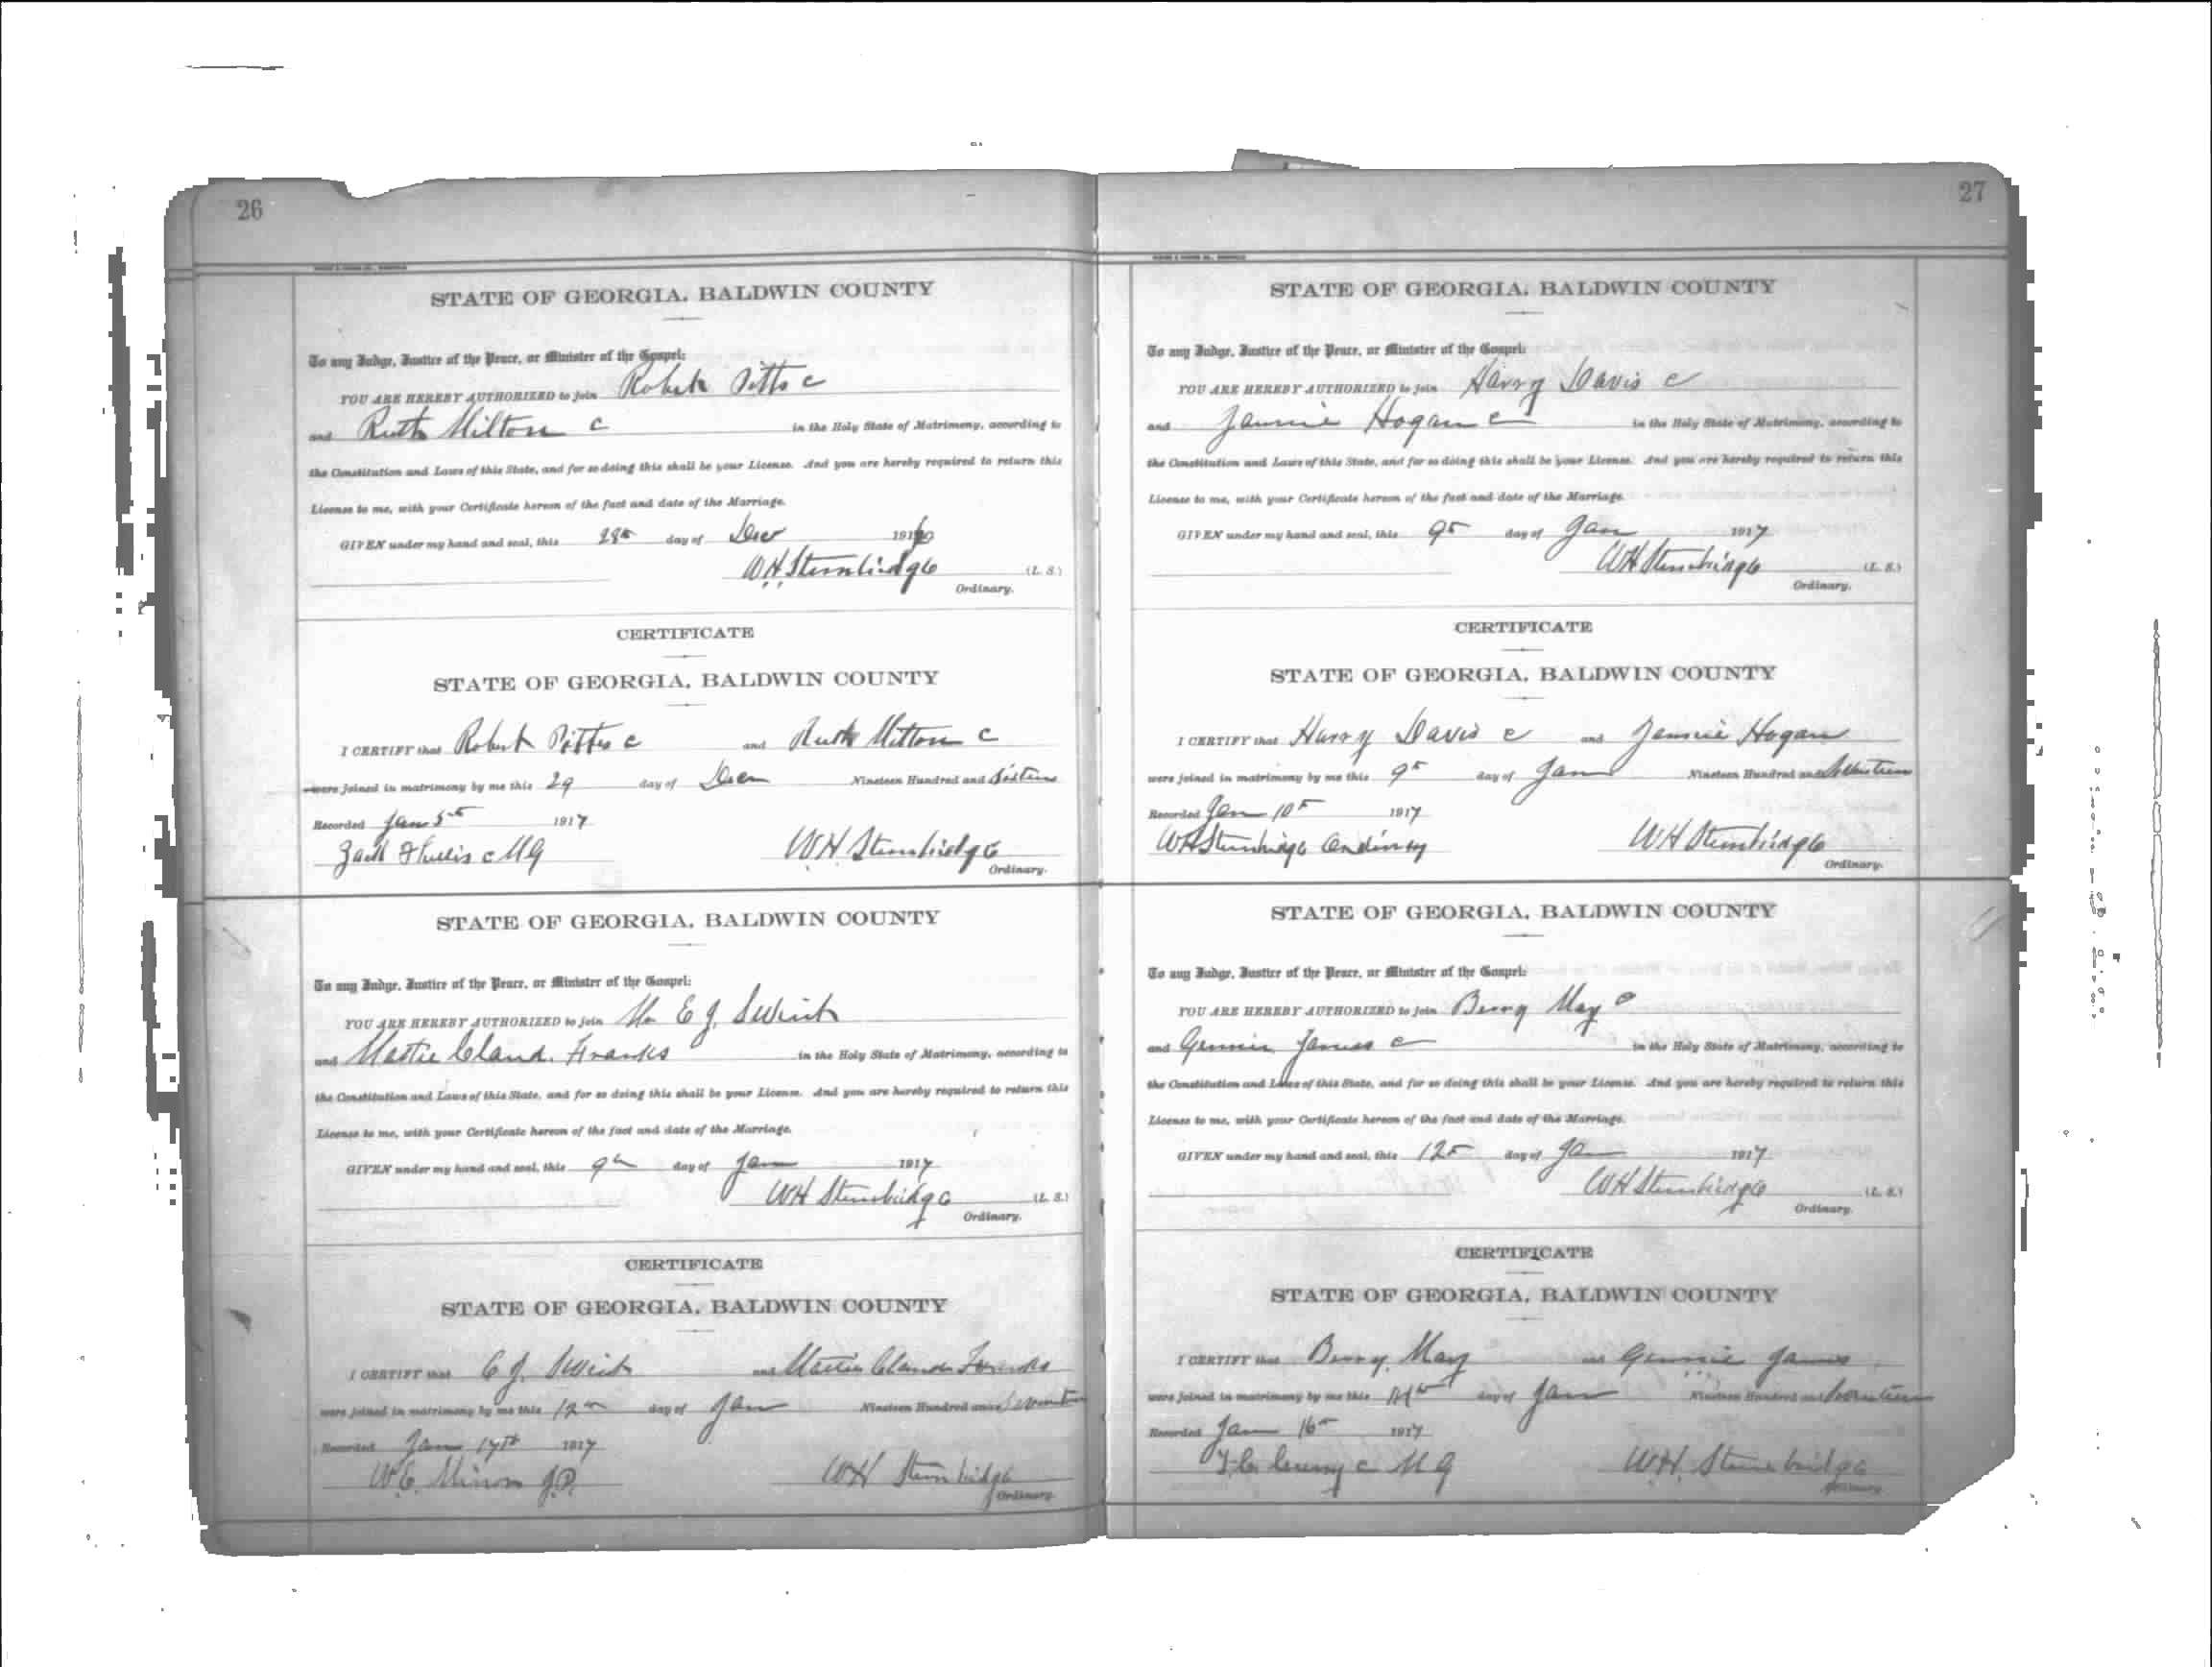 26
STATE OF GEORGIA, BALDWIN COUNTY
To any Judge, Justice of the Peace, or Minister of the Gospel:
YOU ARE HEREBY AUTHORIZED to join Robert Pitts c
and Ruth Milton c in the Holy State of Matrimony, according to
the Constitution and Laws of this State, and for so doing this shall be your License. And you are hereby required to return this
License to me, with your Certificate hereon of the fact and date of the Marriage.
GIVEN under my hand and seal, this day of Dec 1916
WH Stembridge (L. S.)
Ordinary.
CERTIFICATE
STATE OF GEORGIA, BALDWIN COUNTY
I CERTIFY that Robert Pitts c and Ruth Milton c
were joined in matrimony by me this 29 day of Dec Nineteen Hundred and Sixteen
Recorded Jan 5th 1917
Zach c MG WH Stembridge
Ordinary.
STATE OF GEORGIA, BALDWIN COUNTY
To any Judge, Justice of the Peace, or Minister of the Gospel:
YOU ARE HEREBY AUTHORIZED to join Mr E J Swint
and Mattie Franks in the Holy State of Matrimony, according to
the Constitution and Laws of this State, and for so doing this shall be your License. And you are hereby required to return this
License to me, with your Certificate hereon of the fact and date of the Marriage.
GIVEN under my hand and seal, this 9th day of Jan 1917
WH Stembridge (L. S.)
Ordinary.
CERTIFICATE
STATE OF GEORGIA, BALDWIN COUNTY
I CERTIFY that E J Swint and Mattie Franks
were joined in matrimony by me this 12th day of Jan Nineteen Hundred and Seventeen
Recorded Jan 17th 1917
W.C. Minor J.P. WH Stembridge
Ordinary.
27
STATE OF GEORGIA, BALDWIN COUNTY
To any Judge, Justice of the Peace, or Minister of the Gospel:
YOU ARE HEREBY AUTHORIZED to join Harry Davis c
and Jannie Hogan c in the Holy State of Matrimony, according to
the Constitution and Laws of this State, and for so doing this shall be your License. And you are hereby required to return this
License to me, with your Certificate hereon of the fact and date of the Marriage.
GIVEN under my hand and seal, this 9th day of Jan 1917
WH Stembridge (L. S.)
Ordinary.
CERTIFICATE
STATE OF GEORGIA, BALDWIN COUNTY
I CERTIFY that Harry Davis c and Jannie Hogan
were joined in matrimony by me this 9th day of Jan Nineteen Hundred and Seventeen
Recorded Jan 10th 1917
WH Stembridge Ordinary WH Stembridge
Ordinary.
STATE OF GEORGIA, BALDWIN COUNTY
To any Judge, Justice of the Peace, or Minister of the Gospel:
YOU ARE HEREBY AUTHORIZED to join Berry May c
and Gennie James c in the Holy State of Matrimony, according to
the Constitution and Laws of this State, and for so doing this shall be your License. And you are hereby required to return this
License to me, with your Certificate hereon of the fact and date of the Marriage.
GIVEN under my hand and seal, this 12th day of Jan 1917
WH Stembridge (L. S.)
Ordinary.
CERTIFICATE
STATE OF GEORGIA, BALDWIN COUNTY
I CERTIFY that Berry May and Gennie James
were joined in matrimony by me this day of Jan Nineteen Hundred and Seventeen
Recorded Jan 16th 1917
c MG W.H. Stembridge
Ordinary.